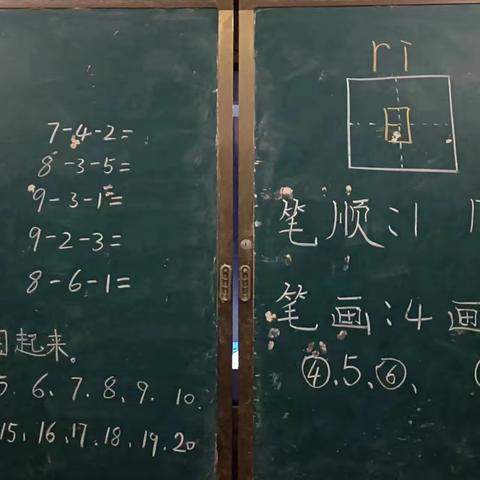 7-4-2=
8-3-5=
9-3-1=
9-2-3=
8-6-1=
起来。
5、6、7、8、9、10、
15、16、17、18、19、20
rī
日
笔顺:丨
笔画:4画
④、5、⑥、